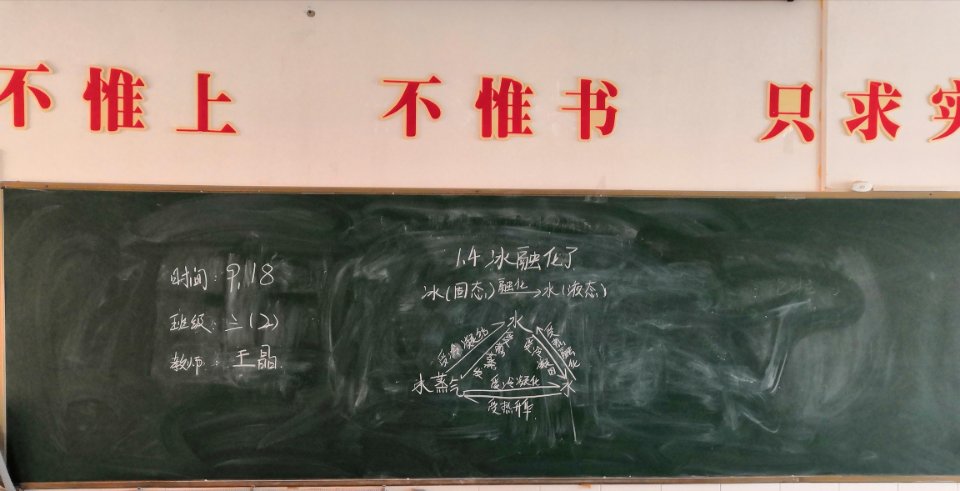 不惟上 不惟书 只求实
时间：9.18
班级：三(2)
教师：王晶
1.4 冰融化了
冰(固态) 融化 → 水(液态)
水
受冷凝结
受热蒸发
受冷凝固
受热融化
水蒸气
受冷凝化
冰
受热升华